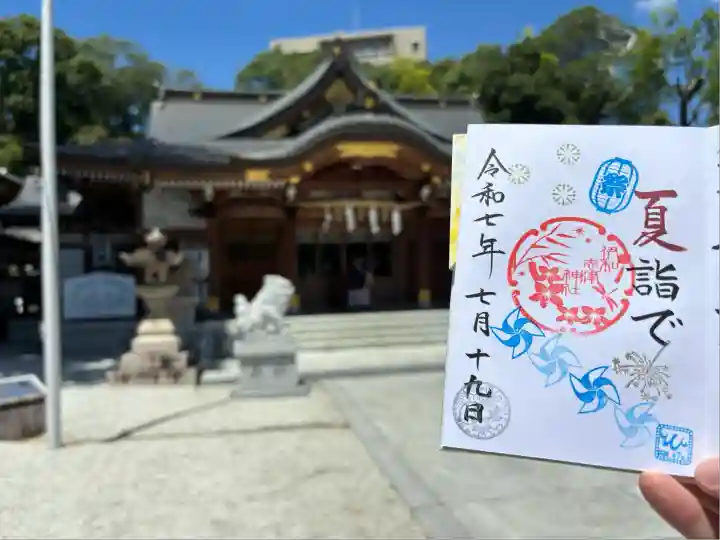 夏詣で
祭
令和七年 七月十九日